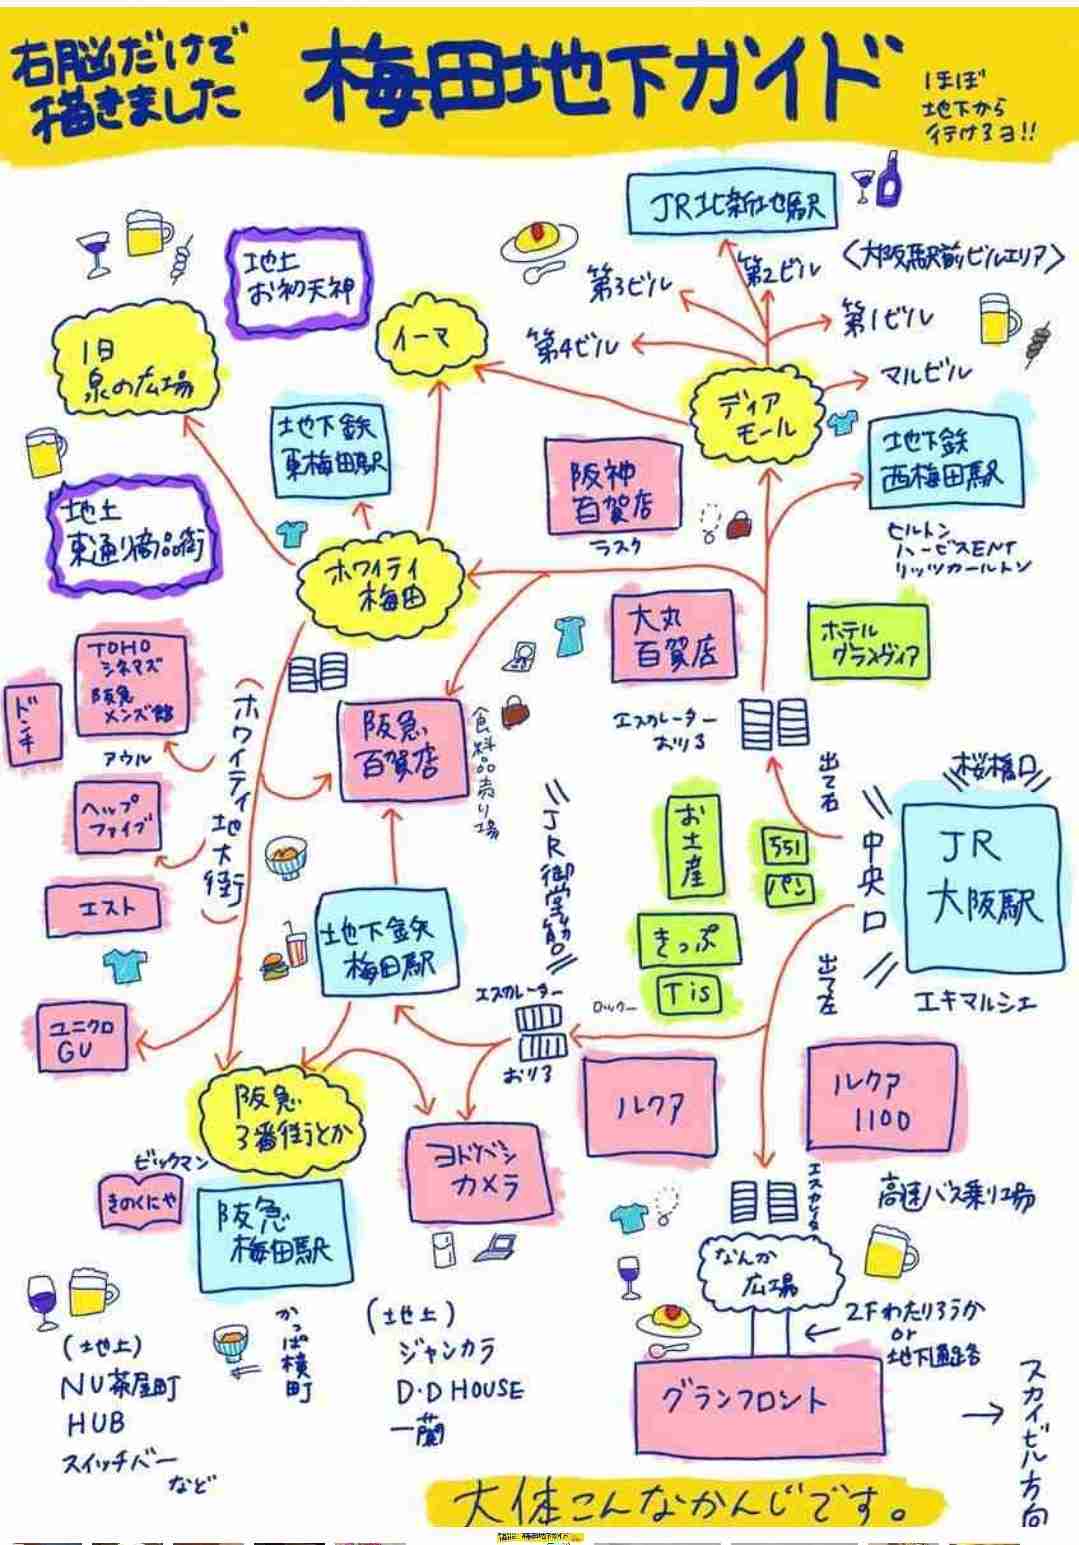 右脳だけで
描きました
梅田地下ガイド
ほぼ
地下から
行けるヨ!!
JR北新地駅
〈大阪駅前ビルエリア〉
地上
お初天神
第3ビル
第2ビル
第1ビル
第4ビル
マルビル
イーマ
旧
泉の広場
ディア
モール
地下鉄
東梅田駅
地下鉄
西梅田駅
ヒルトン
ハービスENT
リッツカールトン
阪神
百貨店
ラスク
地上
東通り商品街
ホワイティ
梅田
大丸
百貨店
ホテル
グランヴィア
TOHO
シネマズ
阪急
メンズ館
ドンキ
アウル
(ホワイティ地大街)
阪急
百貨店
食料品売り場
エスカレーター
おりる
出て右
桜橋口
ヘップ
ファイブ
エスト
JR御堂筋口
お土産
551
パン
中央口
JR
大阪駅
きっぷ
Tis
出て左
エキマルシェ
地下鉄
梅田駅
エスカレーター
おりる
ユニクロ
GU
ルクア
ルクア
1100
阪急
3番街とか
ビックマン
きのくにや
阪急
梅田駅
ヨドバシ
カメラ
エスカレータ
高速バス乗り場
なんか
広場
2Fわたりろうか
or
地下通路
グランフロント
スカイビル方向
かっぱ横町
(地上)
NU茶屋町
HUB
スイッチバー
など
(地上)
ジャンカラ
D.DHOUSE
一蘭
大体こんなかんじです。